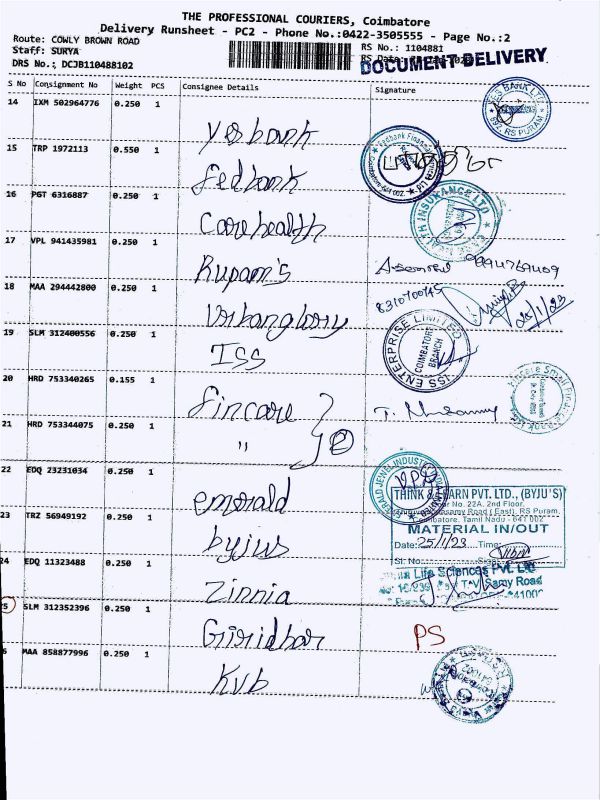 THE PROFESSIONAL COURIERS, Coimbatore
Delivery Runsheet - PC2 - Phone No.:0422-3505555 - Page No.:2
Route: COWLY BROWN ROAD
Staff: SURYA
RS No.: 1104881
DRS No.: DCJB110488102
RS Date:
DOCUMENT DELIVERY
S No Consignment No Weight PCS Consignee Details Signature
14 IXM 502964776 0.250 1
Yesbank
YES BANK LTD.
692, RS PURAM
15 TRP 1972113 0.550 1
fedbank
Fedbank Financial
16 PGT 6316887 0.250 1
Carehealth
HEALTH INSURANCE LTD
17 VPL 941435981 0.250 1
Rupam's
18 MAA 294442800 0.250 1
8310700745
25/1/23
Urbanglory
19 SLM 312400556 0.250 1
ISS
ISS ENTERPRISE LIMITED
COIMBATORE
BRANCH
20 HRD 753340265 0.155 1
fincare
Fincare Small Finance
21 HRD 753344075 0.250 1
" 2
22 EDQ 23231034 0.250 1
emerald
EMERALD JEWEL INDUSTRY
THINK & LEARN PVT. LTD., (BYJU'S)
No. 22A, 2nd Floor,
Road (East), RS Puram,
Coimbatore, Tamil Nadu - 641 002
MATERIAL IN/OUT
23 TRZ 56949192 0.250 1
byjus
Date: 25/1/23 Time:
Sl. No. Sign
24 EDQ 11323488 0.250 1
Zinnia
Life Sciences Pvt. Ltd
T.V. Samy Road
25 SLM 312352396 0.250 1
Giridhar
PS
6 MAA 858877996 0.250 1
Kvb